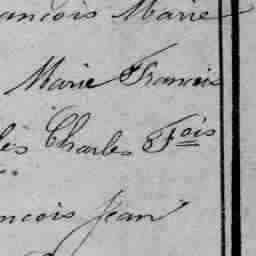 ançois Marie
Marie Francois
les Charles Fois
ncois Jean